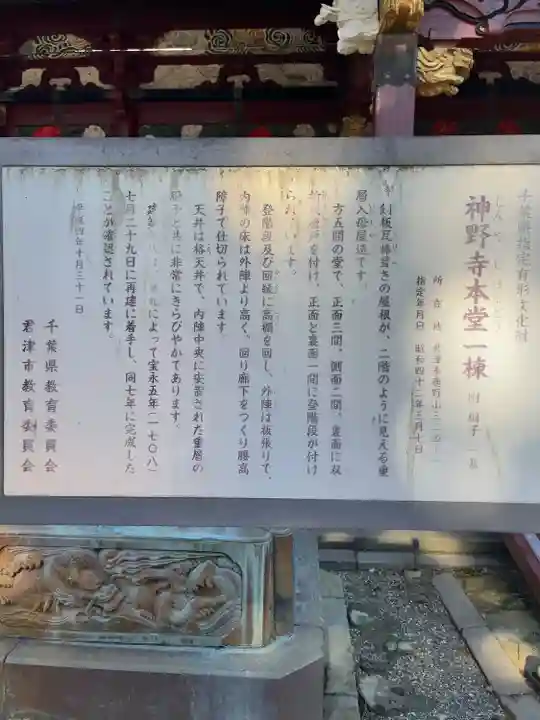 千葉県指定有形文化財
神野寺本堂一棟 附 厨子 一基
所在地 君津市鹿野山三二四ー一
指定年月日 昭和四十二年三月十日
銅板瓦棒葺きの屋根が、二階のように見える重
層入母屋造です。
方五間の堂で、正面三間、側面二間、裏面に双
折桟唐戸を付け、正面と裏面一間に登階段が付け
られています。
登階段及び回縁に高欄を回し、外陣は板張りで、
内陣の床は外陣より高く、回り廊下をつくり腰高
障子で仕切られています。
天井は格天井で、内陣中央に安置された重層の
厨子と共に非常にきらびやかであります。
によって宝永五年(一七〇八)
七月二十九日に再建に着手し、同七年に完成した
ことが確認されています。
平成四年十月三十一日
千葉県教育委員会
君津市教育委員会